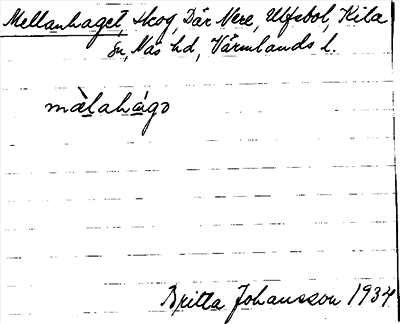 Mellanhaget, skog, Där Nere, Ulfsbol, Kila
sn, Näs hd, Värmlands l.
màlahágo
Britta Johansson 1934